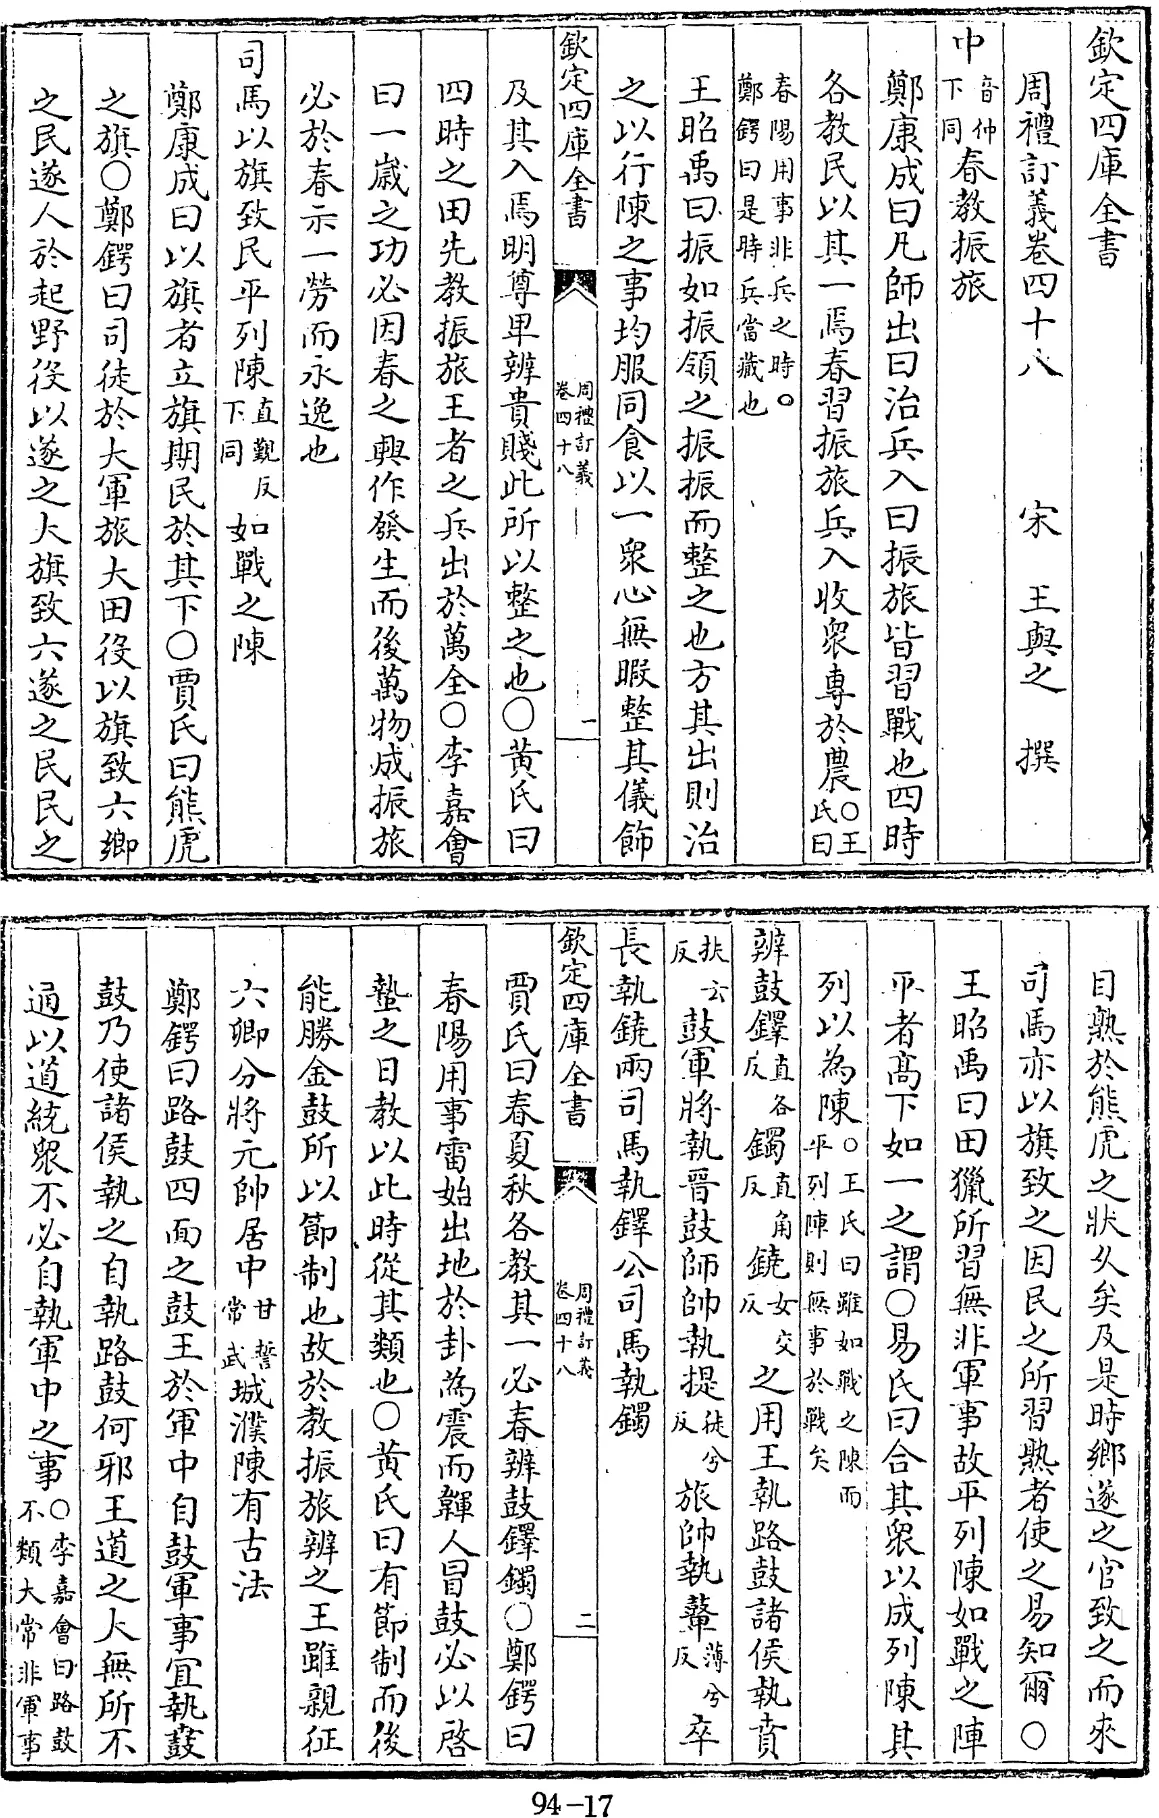 欽定四庫全書
周禮訂義卷四十八　宋　王與之　撰
中音仲下同春教振旅
鄭康成曰凡師出曰治兵入曰振旅皆習戰也四時
各教民以其一焉春習振旅兵入收衆專於農○王氏曰
春陽用事非兵之時○鄭鍔曰是時兵當藏也
王昭禹曰振如振領之振振而整之也方其出則治
之以行陳之事均服同食以一衆心無暇整其儀飾
欽定四庫全書　周禮訂義卷四十八　一
及其入焉明尊卑辨貴賤此所以整之也○黄氏曰
四時之田先教振旅王者之兵出於萬全○李嘉會
曰一歳之功必因春之興作發生而後萬物成振旅
必於春示一勞而永逸也
司馬以旗致民平列陳直觐反下同如戰之陳
鄭康成曰以旗者立旗期民於其下○賈氏曰熊虎
之旗○鄭鍔曰司徒於大軍旅大田役以旗致六鄉
之民遂人於起野役以遂之大旗致六遂之民民之
目熟於熊虎之狀乆矣及是時鄉遂之官致之而來
司馬亦以旗致之因民之所習熟者使之易知爾○
王昭禹曰田獵所習無非軍事故平列陳如戰之陣
平者髙下如一之謂○易氏曰合其衆以成列陳其
列以為陳○王氏曰雖如戰之陳而平列陳則無事於戰矣
辨鼓鐸直各反鐲直角反鐃女交反之用王執路鼓諸侯執賁
扶云反鼓軍將執晉鼓師帥執提徒兮反旅帥執鼙薄兮反卒
長執鐃兩司馬執鐸公司馬執鐲
欽定四庫全書　周禮訂義卷四十八　二
賈氏曰春夏秋各教其一必春辨鼓鐸鐲○鄭鍔曰
春陽用事雷始出地於卦為震而韗人冒鼓必以啓
蟄之日教以此時從其類也○黄氏曰有節制而後
能勝金鼓所以節制也故於教振旅辨之王雖親征
六卿分將元帥居中甘誓常武城濮陳有古法
鄭鍔曰路鼓四面之鼓王於軍中自鼓軍事宜執鼖
鼓乃使諸侯執之自執路鼓何邪王道之大無所不
通以道統衆不必自執軍中之事○李嘉會曰路鼓不類大常非軍事
94-17